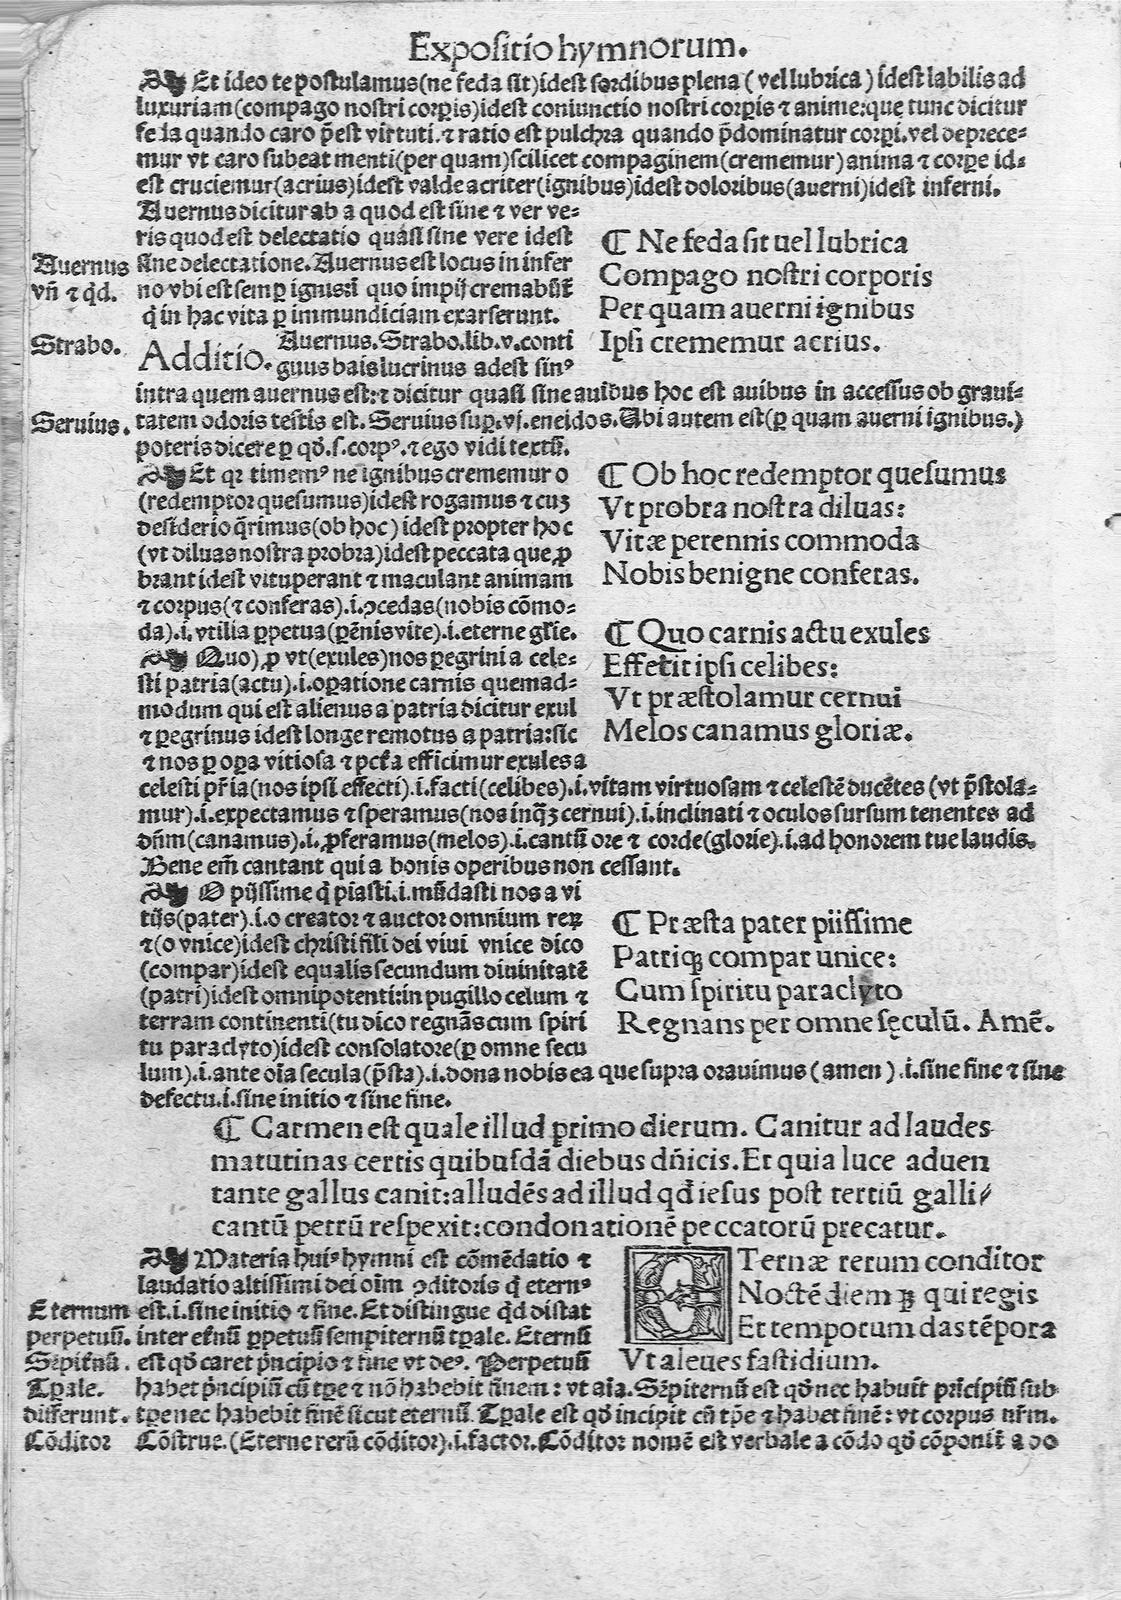 Expositio hymnorum.
Et ideo te postulamus(ne feda sit)idest sordibus plena (vel lubrica) idest labilis ad
luxuriam(compago nostri corꝑis)idest coniunctio nostri corꝑis ⁊ anime:que tunc dicitur
feda quando caro p̄est virtuti.⁊ ratio est pulchra quando p̄dominatur corꝑi.vel deprece-
mur vt caro subeat menti(per quam)scilicet compaginem(crememur)anima ⁊ corꝑe id-
est cruciemur(acrius)idest valde acriter(ignibus)idest doloribus(auerni)idest inferni.
Auernus dicitur ab a quod est sine ⁊ ver ve-
ris quod est delectatio quasi sine vere idest
sine delectatione.Auernus est locus in infer
no vbi est semꝑ ignis in quo impij cremabūt
q̄ in hac vita ꝑ immundiciam exarserunt.
Auernus
vn̄ ⁊ qd̄.
¶ Ne feda sit uel lubrica
Compago nostri corporis
Per quam auerni ignibus
Ipsi crememur acrius.
Strabo.
Additio. Auernus.Strabo.lib.v.conti
guus bais lucrinus adest sinꝰ
intra quem auernus est:⁊ dicitur quasi sine auibus hoc est auibus in accessus ob graui-
Seruius.
tatem odoris testis est. Seruius suꝑ.vj.eneidos.Ubi autem est(ꝑ quam auerni ignibus.)
poteris dicere ꝑ qd̄.s.corpꝰ.⁊ ego vidi textū.
Et qꝛ timemꝰ ne ignibus crememur o
(redemptor quesumus)idest rogamus ⁊ cuꝫ
desiderio q̄rimus(ob hoc)idest propter hoc
(vt diluas nostra probra)idest peccata que ꝓ
brant idest vituperant ⁊ maculant animam
⁊ corpus(⁊ conferas).i.ꝯcedas(nobis cōmo-
da).i.vtilia ꝑpetua(ꝑēnis vite).i.eterne gl̄ie.
¶ Ob hoc redemptor quesumus
Vt probra nostra diluas:
Vitæ perennis commoda
Nobis benigne conferas.
Quo)ꝓ vt(exules)nos ꝑegrini a cele-
sti patria(actu).i.oꝑatione carnis quemad-
modum qui est alienus a patria dicitur exul
⁊ ꝑegrinus idest longe remotus a patria:sic
⁊ nos ꝑ oꝑa vitiosa ⁊ pctā efficimur exules a
¶ Quo carnis actu exules
Effecti ipsi celibes:
Vt præstolamur cernui
Melos canamus gloriæ.
celesti pr̄ia(nos ipsi effecti).i.facti(celibes).i.vitam virtuosam ⁊ celestē ducētes (vt p̄stola-
mur).i.expectamus ⁊ speramus(nos inqꝫ cernui).i.inclinati ⁊ oculos sursum tenentes ad
dn̄m(canamus).i.ꝓferamus(melos).i.cantū ore ⁊ corde(glorie).i.ad honorem tue laudis.
Bene em̄ cantant qui a bonis operibus non cessant.
O pijssime q̄ piasti.i.mūdasti nos a vi
tijs(pater).i.o creator ⁊ auctor omnium reꝝ
⁊(o vnice)idest christi fili dei viui vnice dico
(compar)idest equalis secundum diuinitatē
(patri)idest omnipotenti:in pugillo celum ⁊
terram continenti(tu dico regnās cum spiri
tu paraclyto)idest consolatore(ꝑ omne secu
¶ Præsta pater piissime
Patriqꝫ compar unice:
Cum spiritu paraclyto
Regnans per omne sęculū. Amē.
lum).i.ante oīa secula(p̄sta).i.dona nobis ea que supra orauimus (amen).i.sine fine ⁊ sine
defectu.i.sine initio ⁊ sine fine.
¶ Carmen est quale illud primo dierum. Canitur ad laudes
matutinas certis quibusdā diebus dn̄icis. Et quia luce aduen
tante gallus canit:alludēs ad illud qd̄ iesus post tertiū galli/
cantū petrū respexit:condonationē peccatorū precatur.
Materia huiꝰ hymni est cōmēdatio ⁊
laudatio altissimi dei oīm ꝯditoris q̄ eternꝰ
est.i.sine initio ⁊ fine. Et distingue qd̄ distat
inter et̄nū ꝑpetuū sempiternū tꝑale. Eternū
est qd̄ caret p̄ncipio ⁊ fine vt deꝰ. Perpetuū
Eternum
perpetuū.
Sēpit̄nū.
Tꝑale.
differunt.
Cōditor
ETernæ rerum conditor
Noctē diemqꝫ qui regis
Et temporum das tēpora
Vt aleues fastidium.
habet p̄ncipiū cū tꝑe ⁊ nō habebit finem: vt aīa. Sēpiternū est qd̄ nec habuit prīcipiū sub
tꝑe nec habebit finē sicut eternū. Tꝑale est qd̄ incipit cū tꝑe ⁊ habet finē: vt corpus nr̄m.
Cōstrue.(Eterne rerū cōditor).i.factor.Cōditor nomē est verbale a cōdo qd̄ cōponit̄ a do